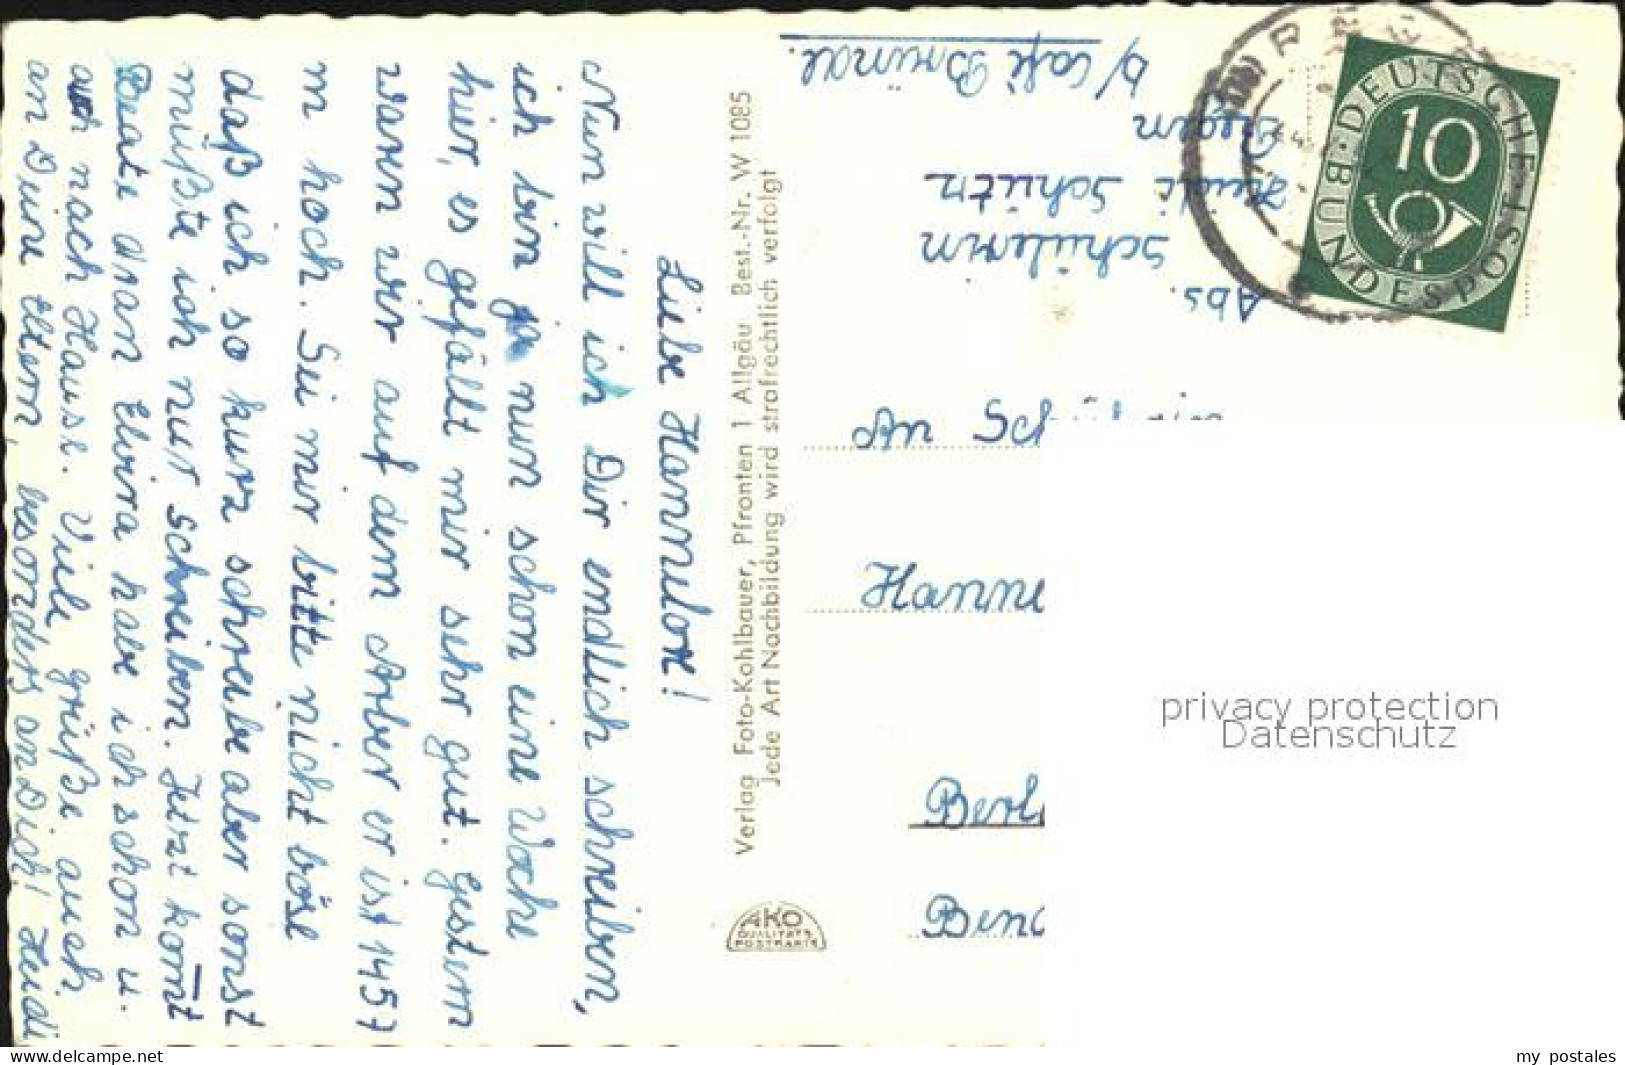 Liebe Hannelore!
Nun will ich Dir endlich schreiben,
ich bin ja nun schon eine Woche
hier, es gefällt mir sehr gut. Gestern
waren wir auf dem Arber er ist 1457
m hoch. Sei mir bitte nicht böse
daß ich so kurz schreibe aber sonst
müßte ich nur schreiben. Jetzt kommt
Beate dran Elvira habe ich schon u.
auch nach Hause. Viele grüße auch
an Deine Eltern, besonders an Dich! Heidi
Verlag Foto-Kohlbauer, Pfronten 1 Allgäu Best.-Nr. W 1085
Jede Art Nachbildung wird strafrechtlich verfolgt
AKO
QUALITÄTS
POSTKARTE
Abs.
Schülerin
Heidi Schütz
Regen
b/ Café Bründl.
DEUTSCHE BUNDESPOST
10
An
Hanne
Berl
privacy protection
Datenschutz
www.delcampe.net
my_postales